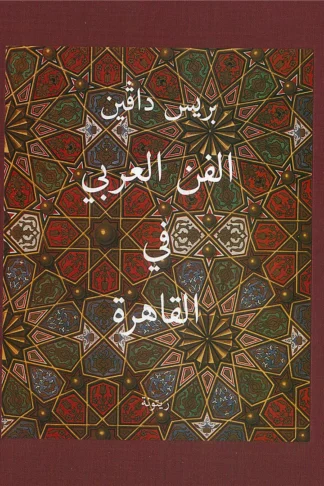 بريس داڤين
الفن العربي
في
القاهرة
زيتونة